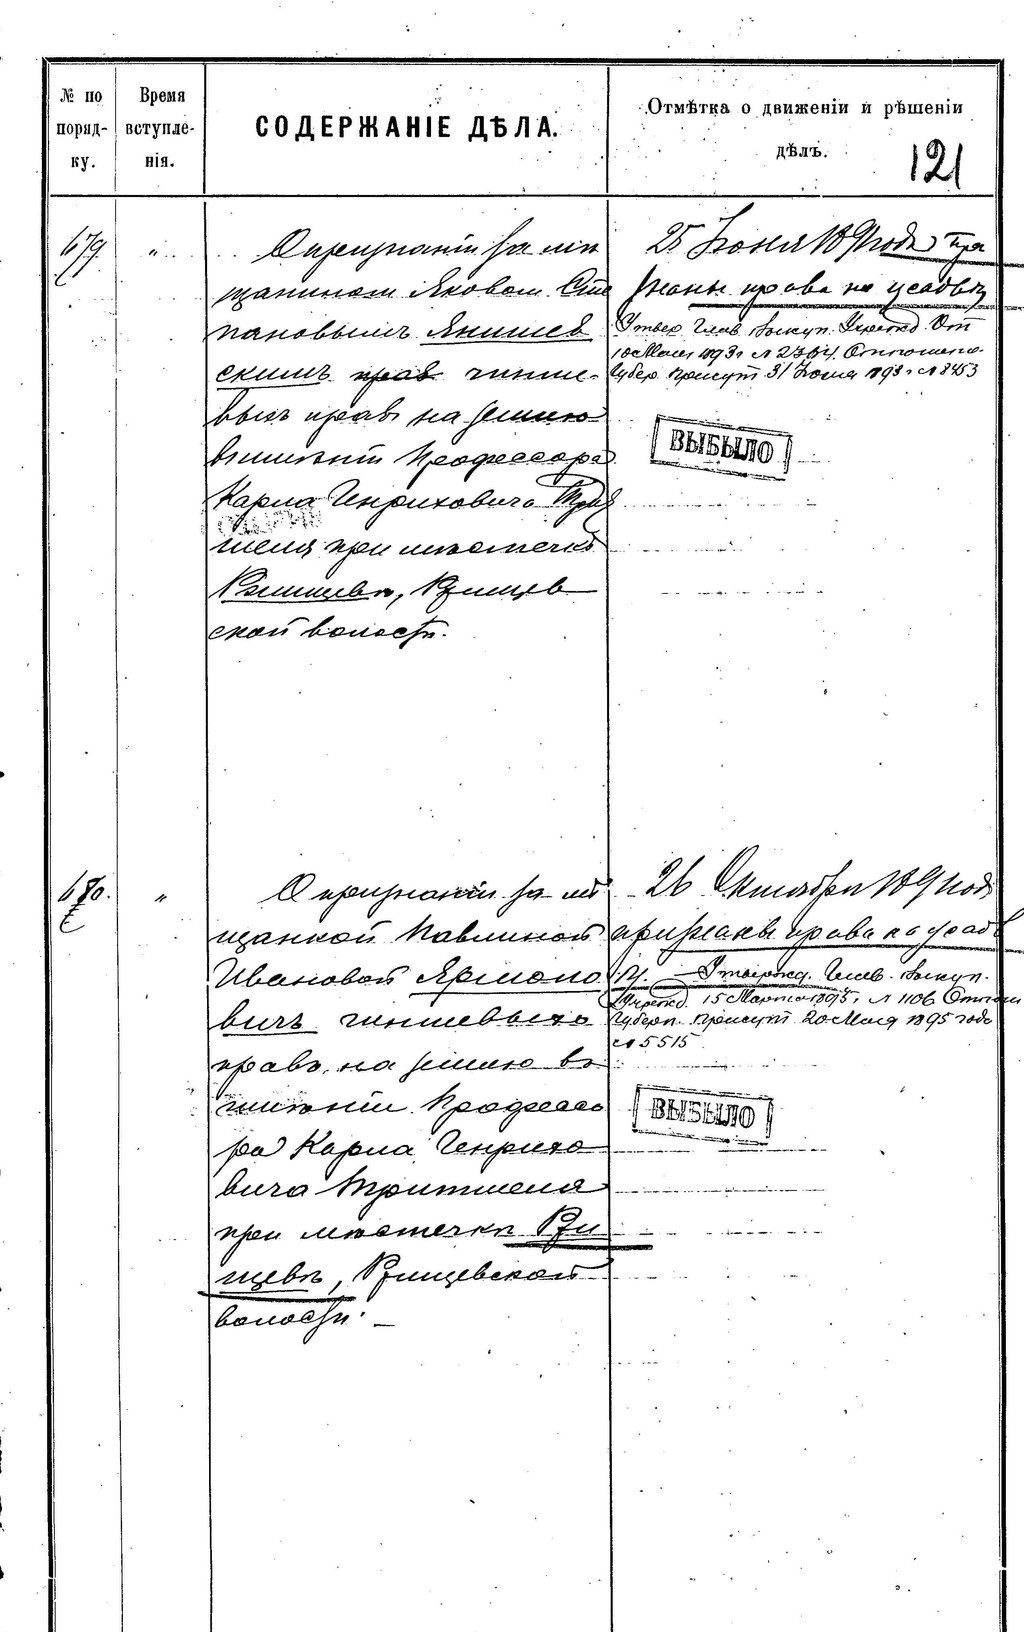 № по порядку.
Время вступленія.
СОДЕРЖАНІЕ ДѢЛА.
Отмѣтка о движеніи и рѣшеніи дѣлъ.
121
679
"
О признаніи за мѣ
щаниномъ Яковомъ Сте
пановымъ Янишев
скимъ прав чинше-
выхъ правъ на землю
въ имѣніи Профессора
Карла Генриховича Трит
шеля при мѣстечкѣ
Ржищевѣ, Ржищев
ской волости.
25 Іюня 1891 года при
знаны права на усадьбу
Утвер. Глав. Выкуп. Учрежд. От
10 Мая 1893 г. № 2364. Отношен.
Губер. Присут. 31 1893 г. № 3253
ВЫБЫЛО
680.
"
О признаніи за мѣ
щанкой Павлиной
Ивановой Ярмоло
вичъ чиншевыхъ
правъ на землю въ
имѣніи Профессо
ра Карла Генрихо
вича Тритшеля
при мѣстечкѣ Ржи
щевѣ, Ржищевской
волости. —
26 Октября 1891 года
признаны права на усадь
бу. — Утвержд. Глав. Выкуп.
Учрежд. 15 Марта 1895 г. № 1106. Отнош
Губерн. Присут. 20 Мая 1895 года
№ 5515
ВЫБЫЛО